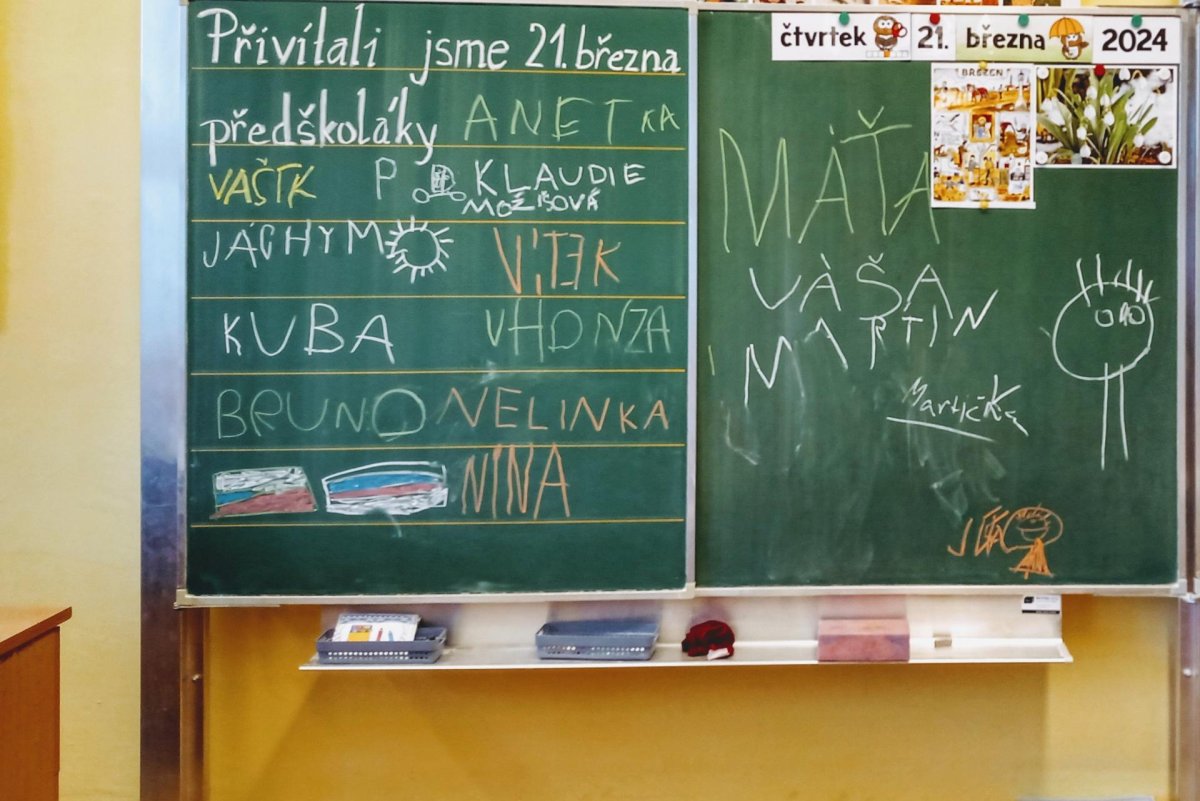 Přivítali jsme 21. března
předškoláky ANETKA
VAŠÍK P KLAUDIE
MOŽÍŠOVÁ
JÁCHYM VÍTEK
KUBA HONZA
BRUNO NELINKA
NINA
čtvrtek 21. března 2024
BŘEZEN
MÁŤA
VÁŠA
MARTIN